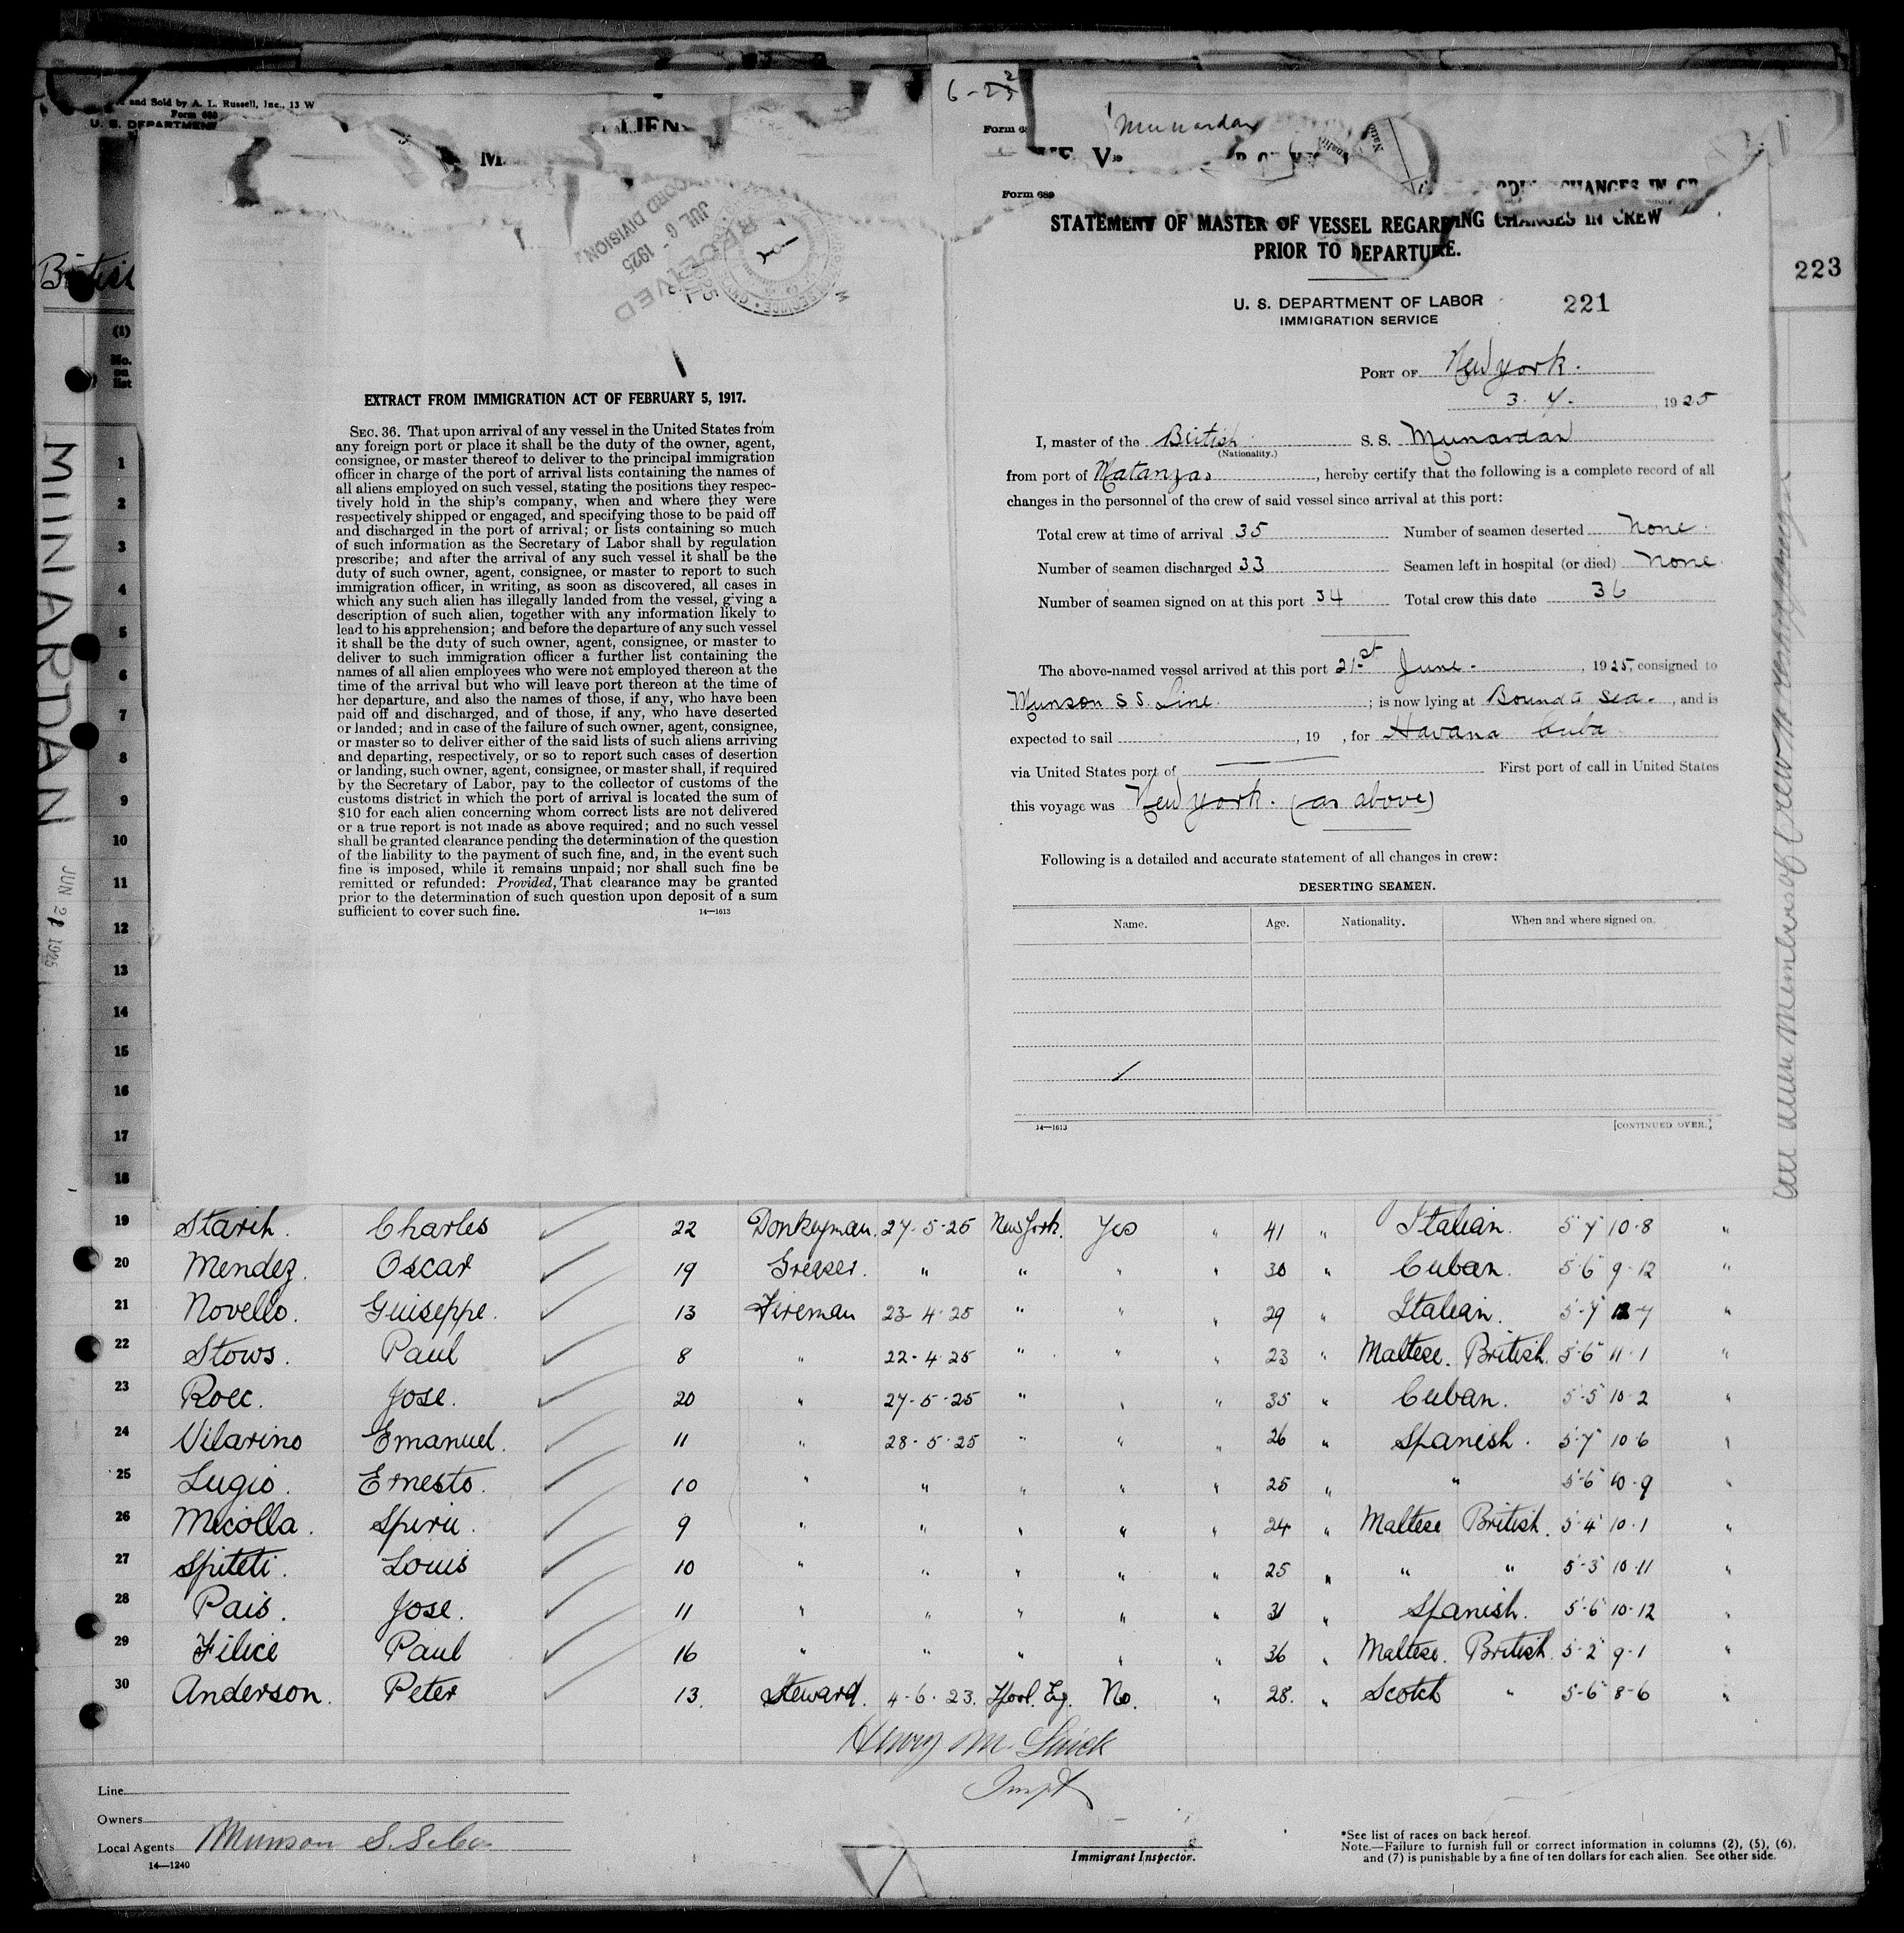 and Sold by A. L. Russell, Inc., 13 W
Form 680
U. S. DEPARTMENT
British
(1)
No.
on
list
MUNARDAN
JUN 21 1925
RECORD DIVISION
JUL 6 - 1925
RECEIVED
EXTRACT FROM IMMIGRATION ACT OF FEBRUARY 5, 1917.
SEC. 36. That upon arrival of any vessel in the United States from
any foreign port or place it shall be the duty of the owner, agent,
consignee, or master thereof to deliver to the principal immigration
officer in charge of the port of arrival lists containing the names of
all aliens employed on such vessel, stating the positions they respec-
tively hold in the ship's company, when and where they were
respectively shipped or engaged, and specifying those to be paid off
and discharged in the port of arrival; or lists containing so much
of such information as the Secretary of Labor shall by regulation
prescribe; and after the arrival of any such vessel it shall be the
duty of such owner, agent, consignee, or master to report to such
immigration officer, in writing, as soon as discovered, all cases in
which any such alien has illegally landed from the vessel, giving a
description of such alien, together with any information likely to
lead to his apprehension; and before the departure of any such vessel
it shall be the duty of such owner, agent, consignee, or master to
deliver to such immigration officer a further list containing the
names of all alien employees who were not employed thereon at the
time of the arrival but who will leave port thereon at the time of
her departure, and also the names of those, if any, who have been
paid off and discharged, and of those, if any, who have deserted
or landed; and in case of the failure of such owner, agent, consignee,
or master so to deliver either of the said lists of such aliens arriving
and departing, respectively, or so to report such cases of desertion
or landing, such owner, agent, consignee, or master shall, if required
by the Secretary of Labor, pay to the collector of customs of the
customs district in which the port of arrival is located the sum of
$10 for each alien concerning whom correct lists are not delivered
or a true report is not made as above required; and no such vessel
shall be granted clearance pending the determination of the question
of the liability to the payment of such fine, and, in the event such
fine is imposed, while it remains unpaid; nor shall such fine be
remitted or refunded: Provided, That clearance may be granted
prior to the determination of such question upon deposit of a sum
sufficient to cover such fine.
14—1613
6-23
Munardan
Form 689
STATEMENT OF MASTER OF VESSEL REGARDING CHANGES IN CREW
PRIOR TO DEPARTURE.
U. S. DEPARTMENT OF LABOR
IMMIGRATION SERVICE
221
223
PORT OF New York.
3. 7. 1925
I, master of the British S. S. Munardan
(Nationality.)
from port of Matanzas, hereby certify that the following is a complete record of all
changes in the personnel of the crew of said vessel since arrival at this port:
Total crew at time of arrival 35 Number of seamen deserted None.
Number of seamen discharged 33 Seamen left in hospital (or died) None.
Number of seamen signed on at this port 34 Total crew this date 36
The above-named vessel arrived at this port 21st June. , 1925, consigned to
Munson S S. Line. ; is now lying at Bound to Sea. , and is
expected to sail , 19 , for Havana Cuba
via United States port of First port of call in United States
this voyage was New York. (as above)
Following is a detailed and accurate statement of all changes in crew:
DESERTING SEAMEN.
Name. Age. Nationality. When and where signed on.
14—1613 [CONTINUED OVER.]
1
2
3
4
5
6
7
8
9
10
11
12
13
14
15
16
17
18
19 Starih. Charles 22 Donkeyman. 27-5-25 New York. Yes " 41 " Italian. 5-7 10-8 "
20 Mendez. Oscar 19 Greaser. " " " " 30 " Cuban. 5-6 9-12 "
21 Novello. Guiseppe. 13 Fireman 23-4-25 " " " 29 " Italian. 5-7 12-7 "
22 Stows. Paul 8 " 22-4-25 " " " 23 " Maltese. British. 5-6 11-1 "
23 Roec. Jose. 20 " 27-5-25 " " " 35 " Cuban. 5-5 10-2 "
24 Vilarino Emanuel. 11 " 28-5-25 " " " 26 " Spanish. 5-7 10-6 "
25 Lugio. Ernesto. 10 " " " " " 25 " " 5-6 10-9 "
26 Micolla. Spiru. 9 " " " " " 24 " Maltese British. 5-4 10-1 "
27 Spiteti. Louis 10 " " " " " 25 " " " 5-3 10-11 "
28 Pais. Jose. 11 " " " " " 31 " Spanish. 5-6 10-12 "
29 Filice Paul 16 " " " " " 36 " Maltese. British. 5-2 9-1 "
30 Anderson. Peter 13. Steward. 4-6-23. Lpool. Eg. No. " 28. " Scotch " 5-6 8-6 "
Line
Owners
Local Agents Munson S.S. Co
14—1240
Immigrant Inspector.
*See list of races on back hereof.
Note.—Failure to furnish full or correct information in columns (2), (5), (6),
and (7) is punishable by a fine of ten dollars for each alien. See other side.